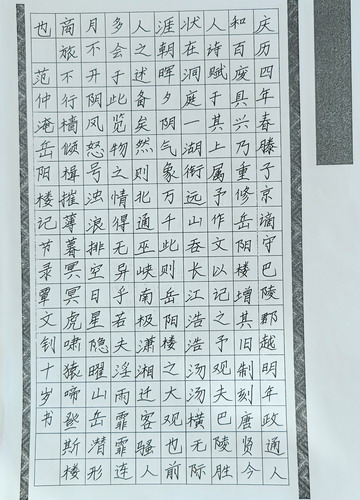 庆历四年春滕子京谪守巴陵郡越明年政通人
和百废具兴乃重修岳阳楼增其旧制刻唐贤今
人诗赋于其上属予作文以记之予观夫巴陵胜
状在洞庭一湖衔远山吞长江浩浩汤汤横无际
涯朝晖夕阴气象万千此则岳阳楼之大观也前
人之述备矣然则北通巫峡南极潇湘迁客骚人
多会于此览物之情得无异乎若夫淫雨霏霏连
月不开阴风怒号浊浪排空日星隐曜山岳潜形
商旅不行樯倾楫摧薄暮冥冥虎啸猿啼登斯楼
也 范仲淹岳阳楼记节录覃文钊十岁书